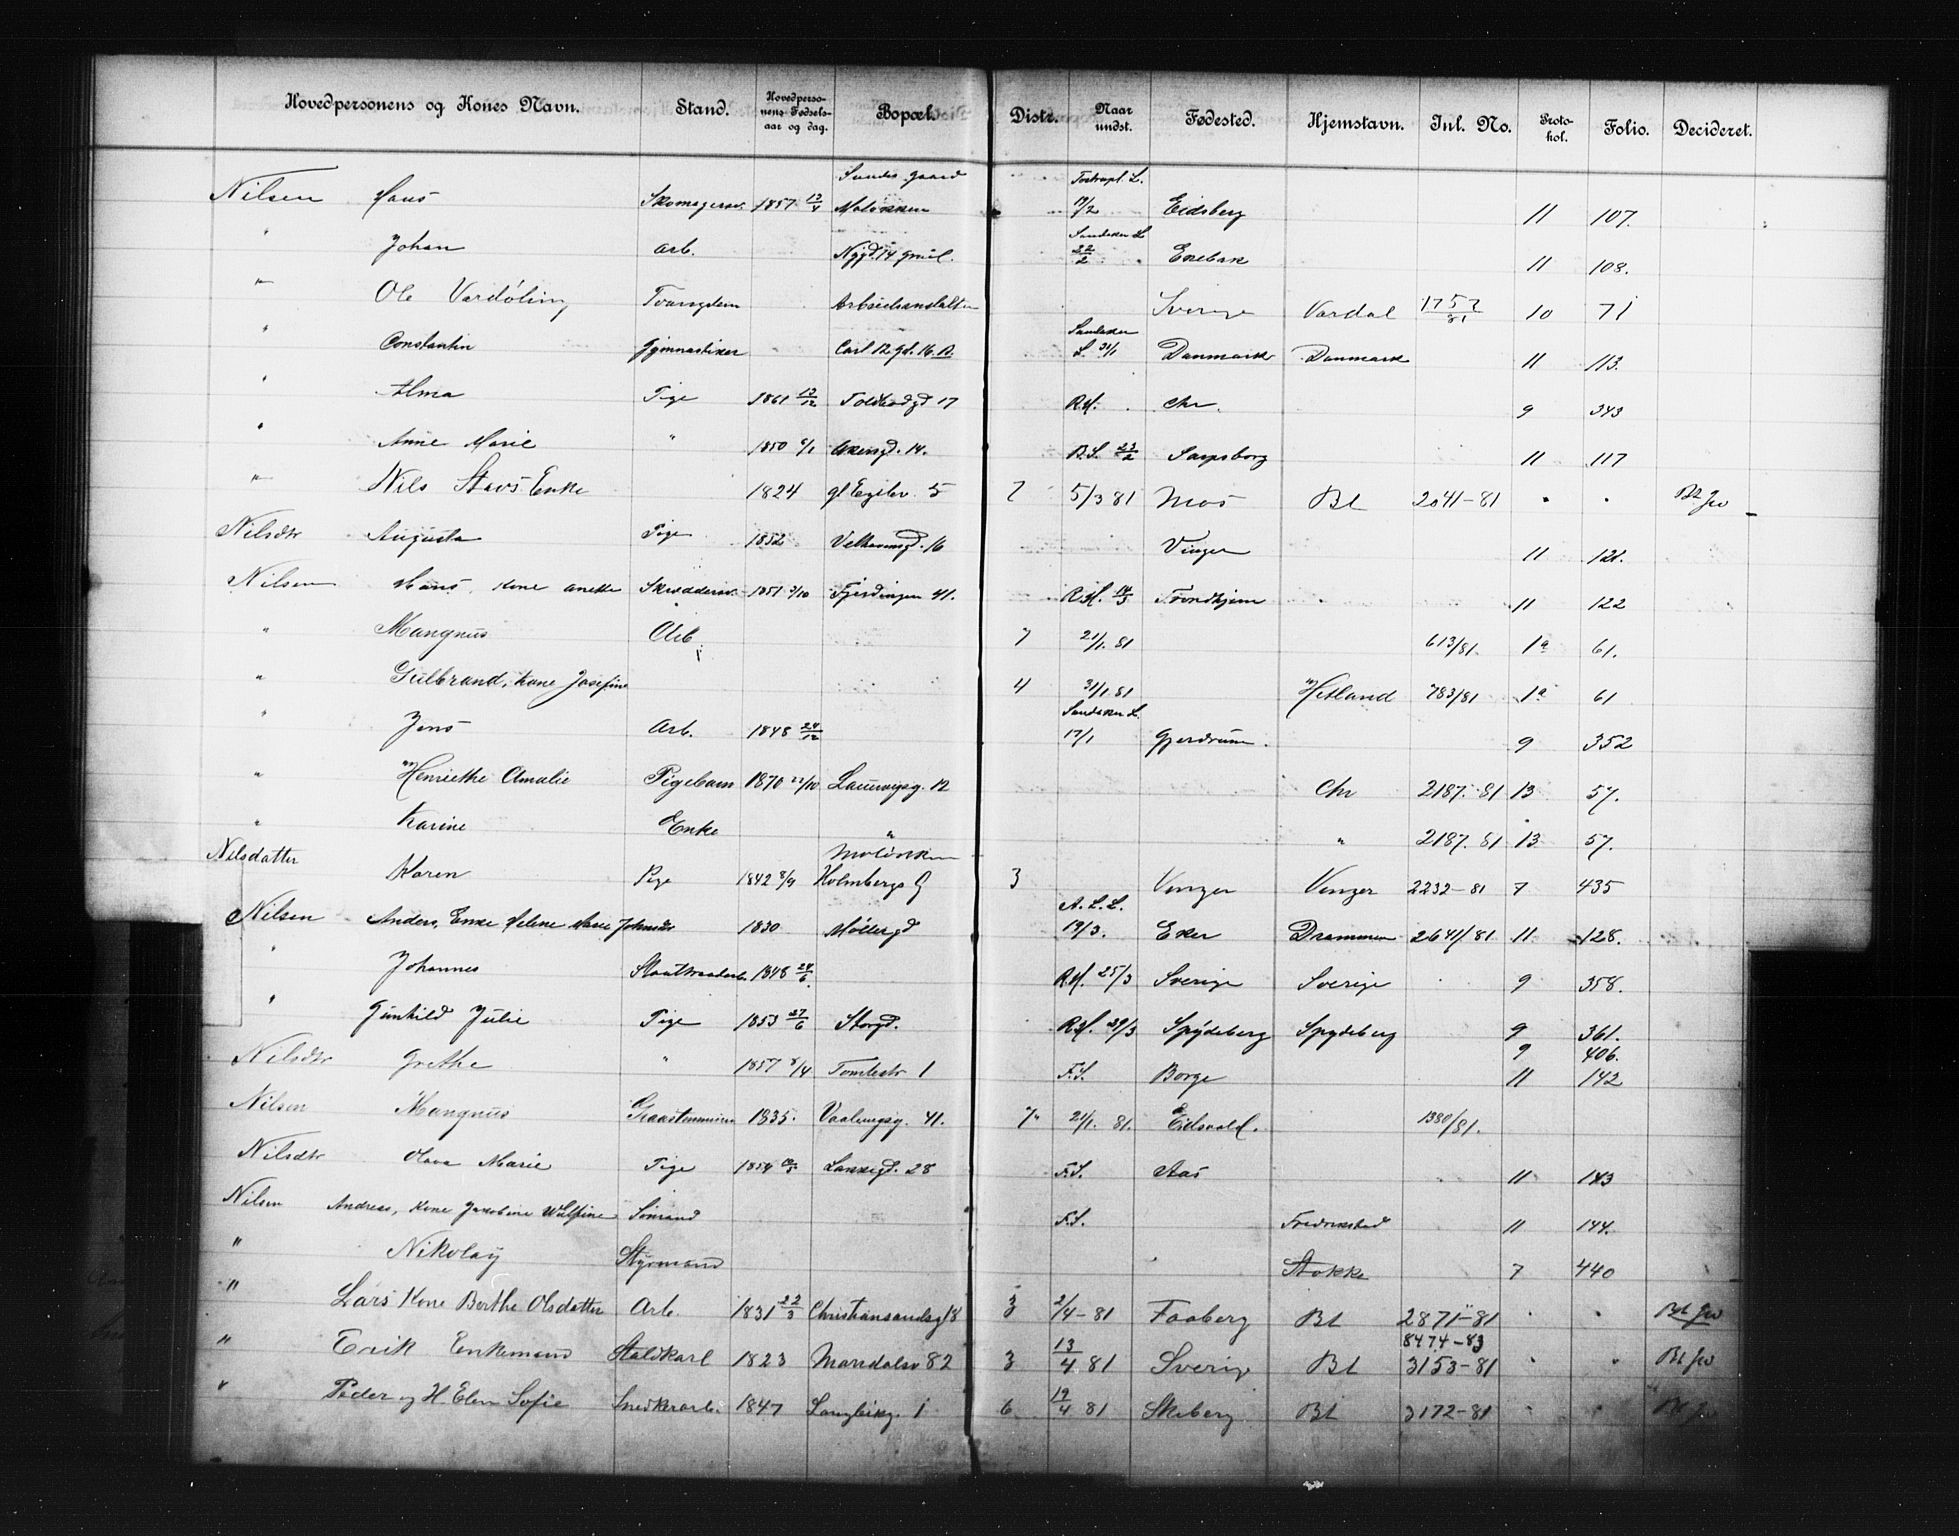 Hovedpersonens og Kones Navn. Stand. Hovedperso-nens Fødsels-aar og dag. Bopæl. Distr. Naar undst. Fødested. Hjemstavn. Inl. No. Proto-kol. Folio. Decideret.
Nilsen Hans Skomagersv. 1857 Gaard 19/2 Eidsberg 11 107.
" Johan Arb. 14 22/2 Enebak 11 108.
" Ole Tvangslem Arbeidsanstalten Sverige Vardal 1757/81 10 71
" Constantin Gymnastiker 16 B. L. 31/1 Danmark Danmark 11 113.
" Alma Pige 1861 13/12 Toldbodgd 17 R.H. Chr. 9 343
" Anne Marie " 1850 Akersgd. 14. 23/2 Sarpsborg 11 117
" Nils Enke 1824 gl 5 2 5/3 81 Mos Bl 2041-81 " "
Nilsdtr Augusta Pige 1852 16 Vinger 11 121.
Nilsen Hans, Kone Anette Skræddersv. 1851 3/10 Fjerdingen 41. R.H. 14/3 Trondhjem 11 122
" Mangnus Arb. 7 21/1 81 613/81 1a 61.
" Gulbrand, Kone Josefine 4 31/1 81 Hetland 783/81 1a 61
" Jens Arb. 1848 24/12 Sandaker L. 17/1 Gjerdrum. 9 352
" Henriethe Amalie Pigebarn 1870 22/10 12 Chr 2187. 81 13 57.
" Karine Enke " " 2187. 81 13 57.
Nilsdatter Karen Pige 1842 8/9 Holmbergs G 3 Vinger Vinger 2232-81 7 435
Nilsen Anders, Enke Helene Marie Johnsdtr 1830 Møllergd A.L.L. 19/3. Eker Drammen 2641/81 11 128.
" Johannes 1848 24/6. R.H. 25/3 Sverige Sverige 9 358.
" Gunhild Julie Pige 1853 27/6 Storgd. R.H. 29/3 Spydeberg Spydeberg 9 361.
9 406.
Nilsdtr Grethe " 1857 8/4 Tomtestr 1 F.S. Borge 11 142
Nilsen Mangnus 1835. Vaalerengsg. 41. 7 21/1. 81. Eidsvold. 1380/81.
Nilsdtr Olava Marie Pige 1854 28 F.S. Aas 11 143
Nilsen Andreas, Kone Jakobine Sømand F.S. Fredrikstad 11 144.
" Nikolay Styrmand Stokke 7 440
" Lars Kone Berthe Olsdatter Arb. 1831 22/3 Christiansandsg 18 3 2/4-81 Faaberg Bl 2871-81 " "
8474-83
" Erik Enkemand Staldkarl 1823 82 3 13/4 81 Sverig Bl 3153-81 " "
" Peder og H. Elen Sofie Snedkerarb. 1847 1 6 19/4 81 Skiberg Bl 3172-81 " "